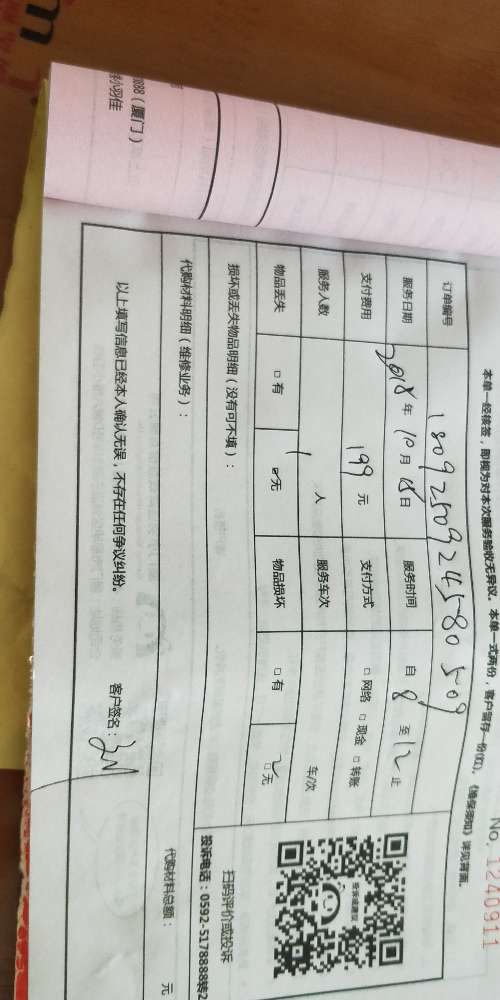 No. 1240911
本单一经核签，即视为对本次服务验收无异议。本单一式两份，客户留存一份(红)，《维保须知》详见背面。
订单编号 180925092458050 9
服务日期 2018年10月18日 服务时间 自8至12止
支付费用 199元 支付方式 □网络 □现金 □转账
服务人数 1人 服务车次 车/次
物品丢失 □有 ☑无 物品损坏 □有 ☑无
损坏或丢失物品明细（没有可不填）：
代购材料明细（维修业务）：
代购材料总额： 元
以上填写信息已经本人确认无误，不存在任何争议纠纷。 客户签名：
投诉或建议
扫码评价或投诉
投诉电话：0592-5178888转2
888（厦门）
小羽佳